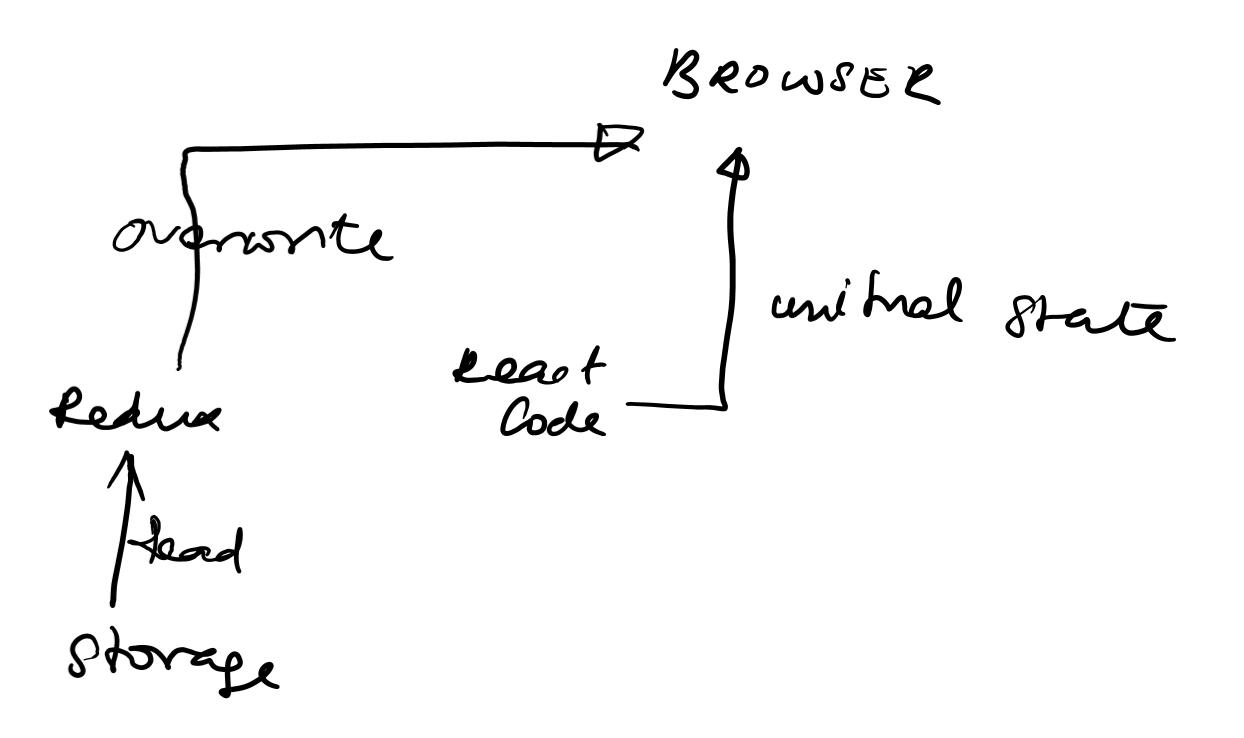 BROWSER
overwrite
initial state
React
Code
Redux
read
Storage